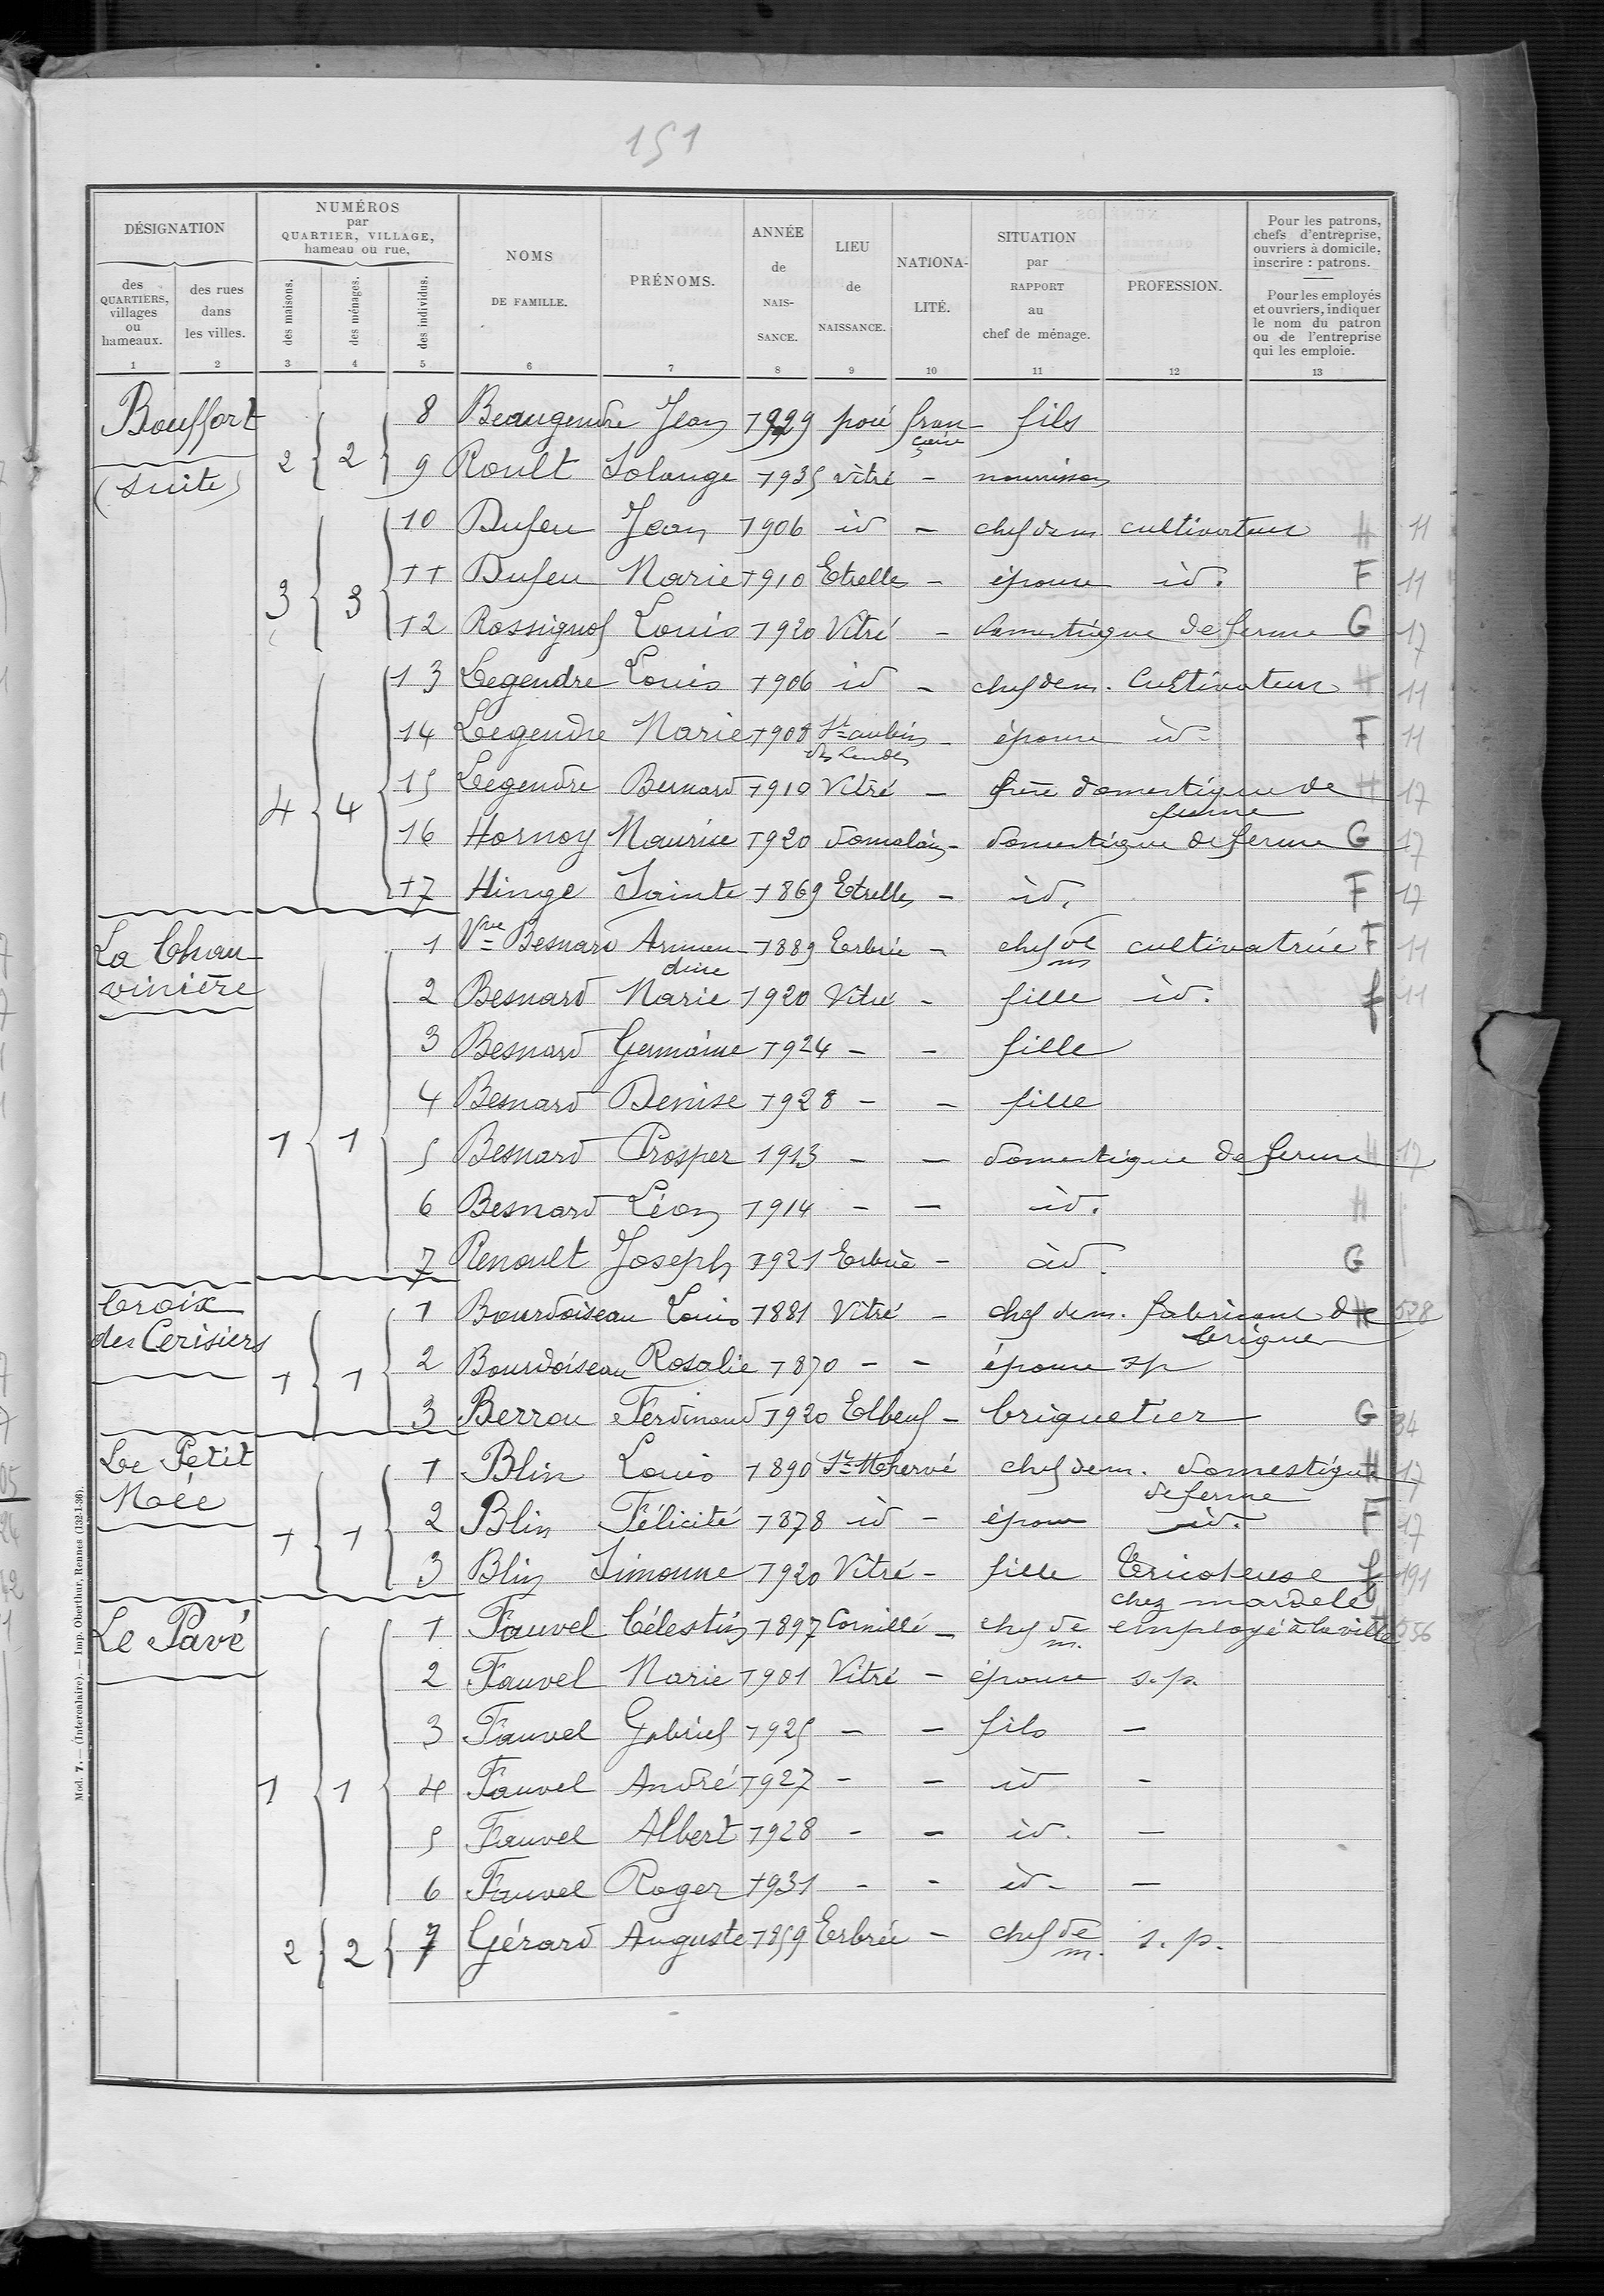 151
DÉSIGNATION
des QUARTIERS, villages ou hameaux.
des rues dans les villes.
NUMÉROS par QUARTIER, VILLAGE, hameau ou rue,
des maisons.
des ménages.
des individus.
NOMS DE FAMILLE.
PRÉNOMS.
ANNÉE de NAIS- SANCE.
LIEU de NAISSANCE.
NATIONA- LITÉ.
SITUATION par RAPPORT au chef de ménage.
PROFESSION.
Pour les patrons, chefs d'entreprise, ouvriers à domicile, inscrire : patrons.
Pour les employés et ouvriers, indiquer le nom du patron ou de l'entreprise qui les emploie.
1 2 3 4 5 6 7 8 9 10 11 12 13
Bouffort 8 Beaugendre Jean 1929 fran- çaise fils
(suite) 2 2 9 Roult Solange 1935 vitré - nourrisson
10 Dufeu Jean 1906 id - chef de m. cultivateur H 11
3 3 11 Dufeu Marie 1910 Etrelles - épouse id. F 11
12 Rossignol Louis 1920 Vitré - domestique de ferme G 17
13 Legendre Louis 1906 id - chef de m. Cultivateur H 11
14 Legendre Marie 1908 St aubin des Landes - épouse id. F 11
4 4 15 Legendre Bernard 1910 Vitré - frère domestique de ferme H 17
16 Hornoy Maurice 1920 domalain - domestique de ferme G 17
17 Hinge Sainte 1869 Etrelles - id. F 17
La Chau 1 Vve Besnard Arman dine 1889 Erbrée - chef de m cultivatrice F 11
vinière 2 Besnard Marie 1920 Vitré - fille id. f 11
3 Besnard Germaine 1924 - - fille
4 Besnard Denise 1928 - - fille
1 1 5 Besnard Prosper 1913 - - domestique de ferme H 17
6 Besnard Léon 1914 - - id. H
7 Renoult Joseph 1921 Erbrée - id. G
Croix 1 Bourdoiseau Louis 1881 Vitré - chef de m. fabricant de briques H 528
des Cerisiers 1 1 2 Bourdoiseau Rosalie 1870 - - épouse sp
3 Berrou Ferdinand 1920 Elbeuf - briquetier G 34
Le Petit 1 Blin Louis 1890 St M'hervé chef de m. domestique de ferme H 17
Moée 1 1 2 Blin Félicité 1878 id - épouse id. F 17
3 Blin Simonne 1920 Vitré - fille tricoteuse chez mardelé f 191
Le Pavé 1 Fauvel Célestin 1897 Cornillé - chef de m. employé à la ville 256
2 Fauvel Marie 1901 Vitré - épouse s.p.
3 Fauvel Gabriel 1925 - - fils -
1 1 4 Fauvel André 1927 - - id -
5 Fauvel Albert 1928 - - id. -
6 Fauvel Roger 1931 - - id - -
2 2 7 Gérard Auguste 1859 Erbrée - chef de m. s.p.
Mod. 7. — (Intercalaire). — Imp. Oberthur, Rennes (132-1-36).